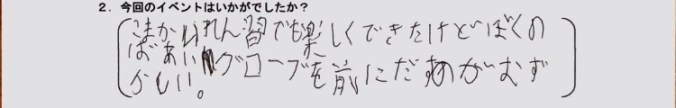 2. 今回のイベントはいかがでしたか？
こまかいれん習でも楽しくできたけどぼくの
ばあいグローブを前にだすのがむず
かしい。